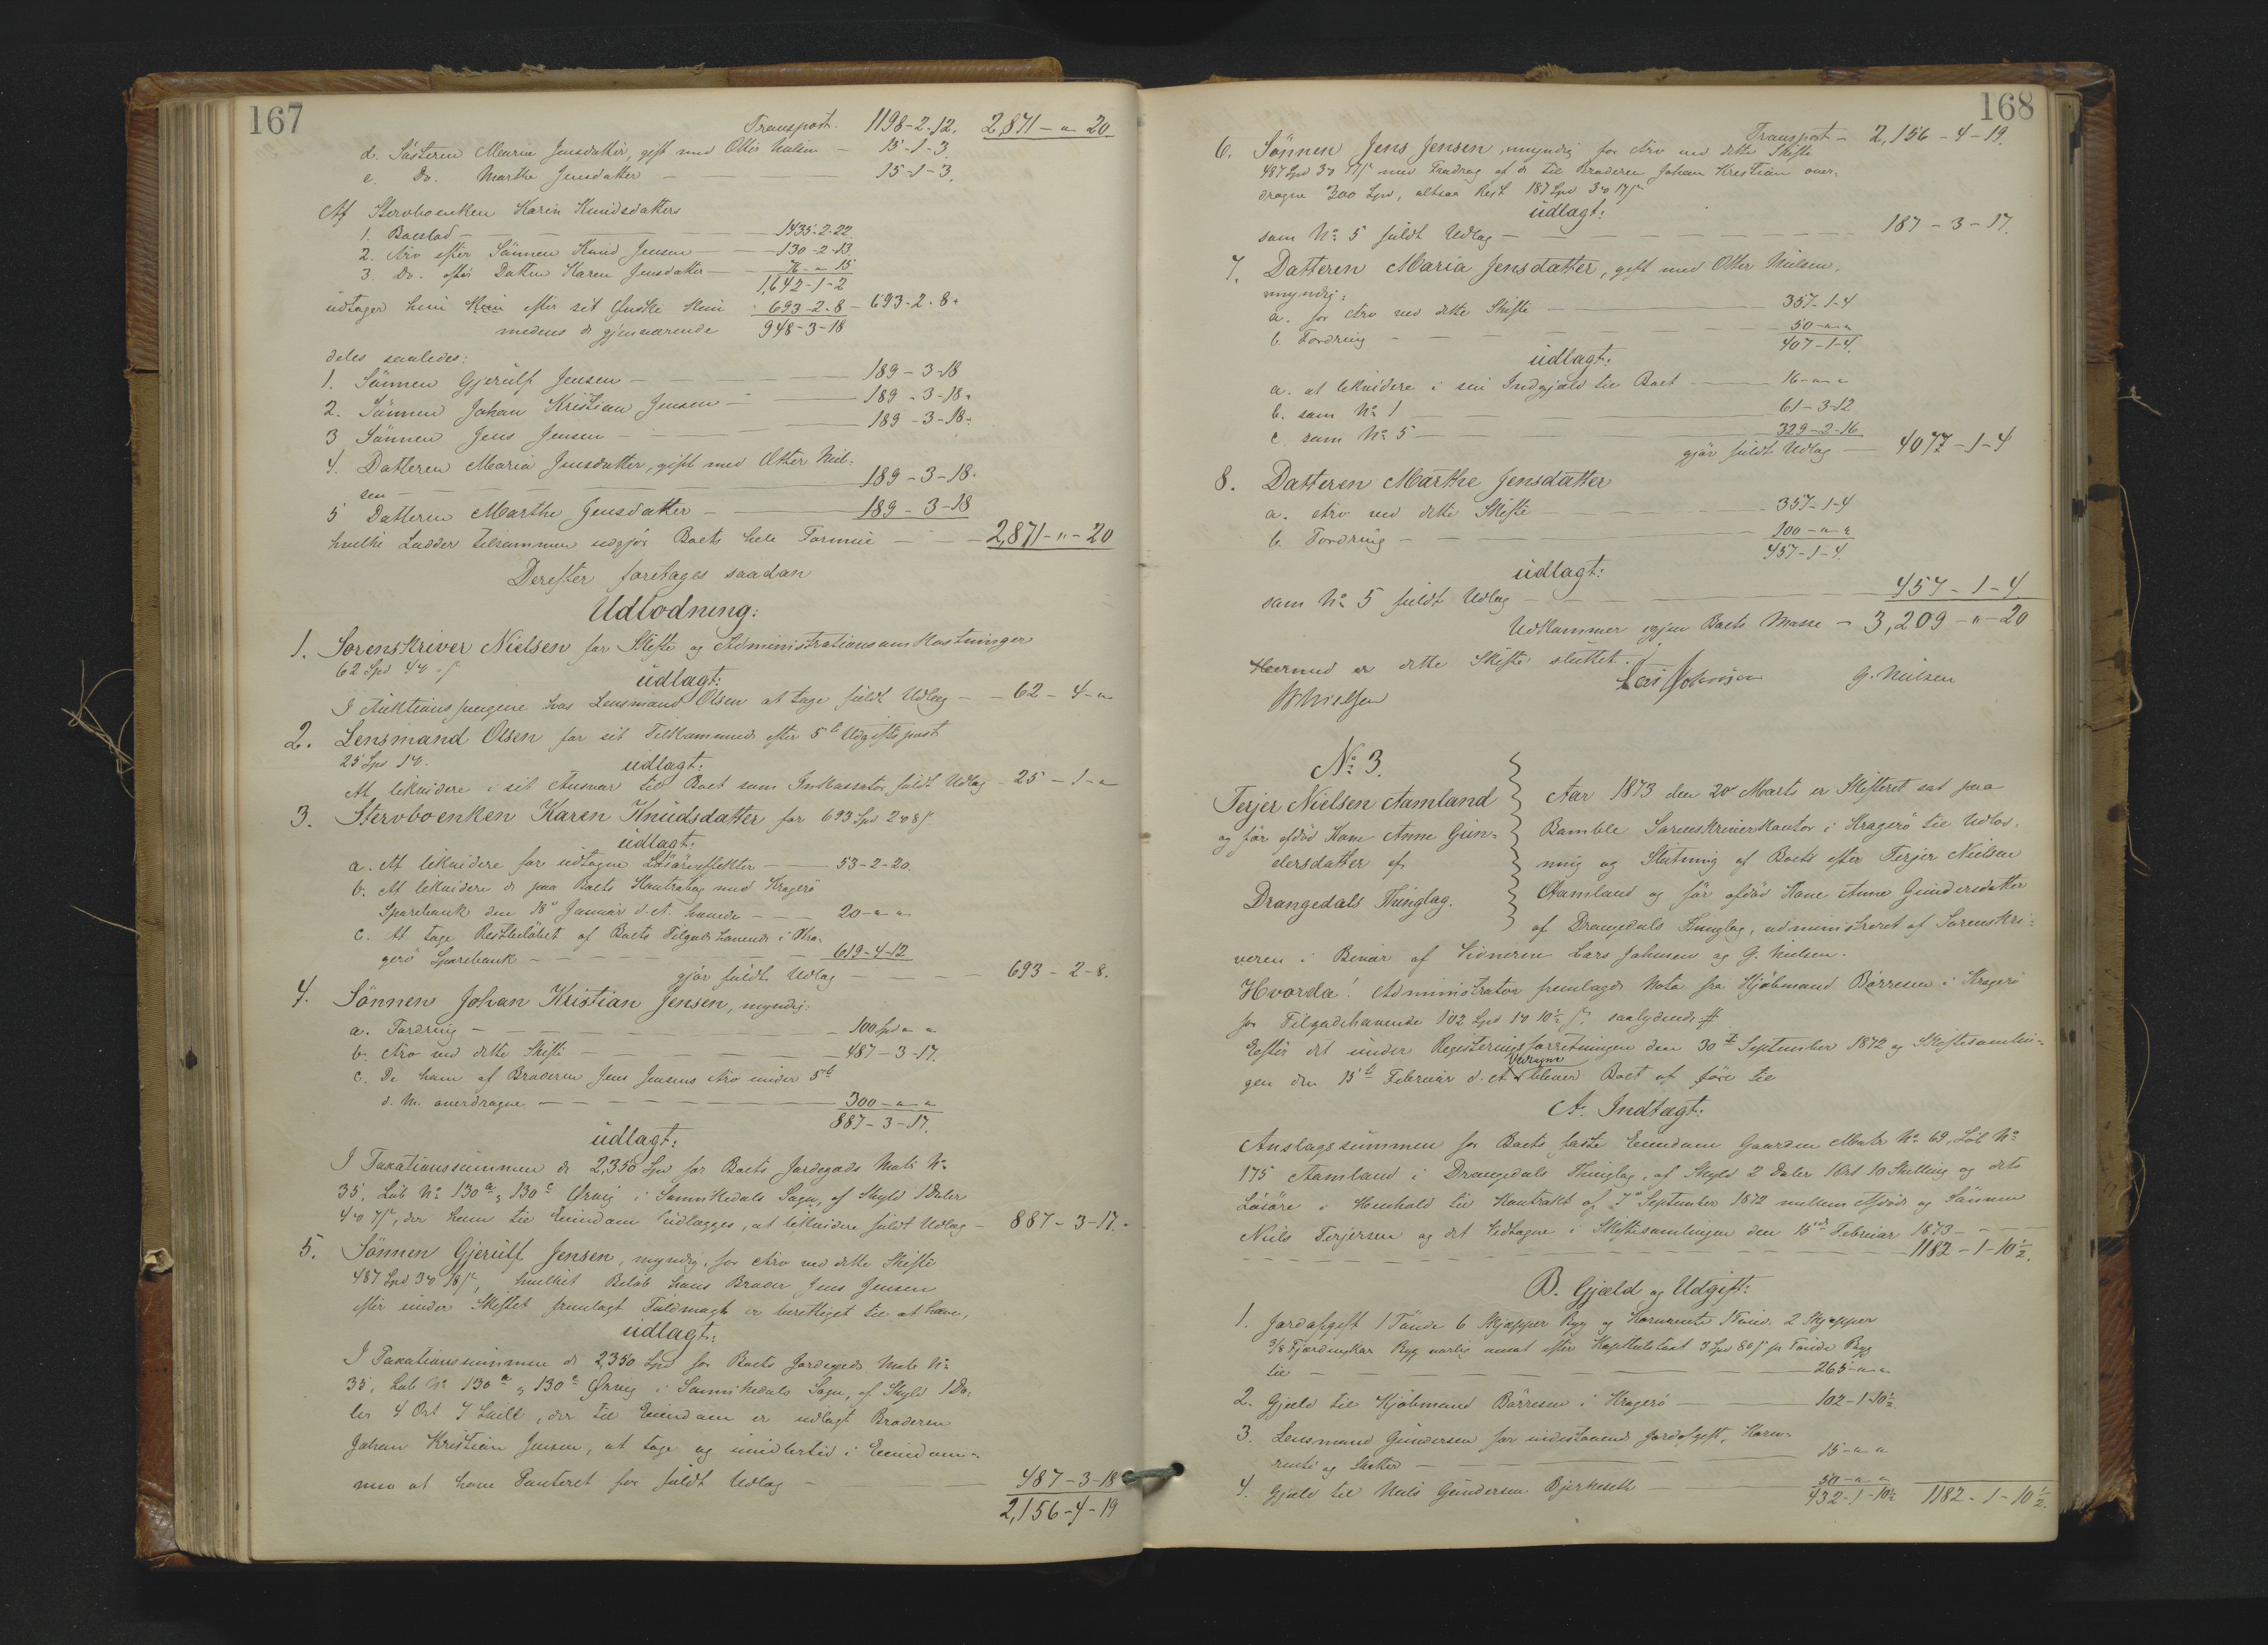 167
Transport. 1198-2-12. 2,871-"-20
d. Søsteren Maria Jensdatter, gift med Otter Nielsen - 15-1-3.
e. Do. Marthe Jensdatter - 15-1-3.
Af Stervboenken Karin Knudsdatters
1. Boeslod - 1435-2-22.
2. Arv efter Sønnen Knud Jensen - 130-2-13.
3. Do. efter Datten Karen Jensdatter - 76-"-15
1,642-1-2
udtages hun efter sit Ønske kun 693-2-8 - 693-2-8.
medens de gjenværende 948-3-18
deles saaledes:
1. Sønnen Gjerulf Jensen - 189-3-18
2. Sønnen Johan Kristian Jensen - 189-3-18.
3 Sønnen Jens Jensen - 189-3-18.
4. Datteren Maria Jensdatter, gift med Otter Niel-
sen - 189-3-18.
5 Datteren Marthe Jensdatter - 189-3-18
hvilke Lodder tilsammen udgjør Boets hele Formue - 2,871-"-20
Derefter foretages saadan
Udlodning:
1. Sorenskriver Nielsen for Skifte og Administrationsomkostninger
62 Spd 4 ort
udlagt:
I Auktionspengene hos Lensmand Olsen at tage fuldt Udlæg - 62-4-"
2. Lensmand Olsen for sit Tilkommende efter 5te Udgiftspost
25 Spd 1 ort.
udlagt:
At likvidere i sit Ansvar til Boet som Inkassator fuldt Udlæg - 25-1-"
3. Stervboenken Karen Knudsdatter for 693 Spd 2 ort 8 s.
udlagt:
a. At likvidere for udtagne Løsøreeffekter - 53-2-20.
b. At likvidere de paa Boets Kontrabog med Kragerø
Sparebank den 18de Januar d. A. hævede - 20-"-"
c. At tage Restbeløbet af Boets Tilgodehavende i Kra-
gerø Sparebank - 619-4-12
gjør fuldt Udlæg - 693-2-8.
4. Sønnen Johan Kristian Jensen, myndig:
a. Fordring - 100 Spd " "
b. Arv ved dette Skifte - 487-3-17.
c. De ham af Broderen Jens Jensens Arv under 5te
d. M. overdragne - 300-"-"
887-3-17.
udlagt:
I Taxationssummen de 2,350 Spd for Boets Jordegods Matr No
35, Løb No 130a og 130c Ørvig i Sannikedals Sogn, af Skyld 1 Daler
4 ort 7 s, der ham til Eiendom udlægges, at likvidere fuldt Udlæg - 887-3-17.
5. Sønnen Gjerulf Jensen, myndig, for Arv ved dette Skifte
487 Spd 3 ort 18 s, hvilket Beløb hans Broder Jens Jensen
efter under Skiftet fremlagt Fuldmagt er berettiget til at hæve,
udlagt:
I Taxationssummen de 2,350 Spd for Boets Jordegods Matr No
35, Løb No 130a og 130c Ørvig i Sannikedals Sogn, af Skyld 1 Da-
ler 4 Ort 7 Skill, der til Eiendom er udlagt Broderen
Johan Kristian Jensen, at tage og imidlertid i Eiendom-
men at have Panteret for fuldt Udlæg - 487-3-18
2,156-4-19
168
Transport - 2,156-4-19.
6. Sønnen Jens Jensen, myndig for Arv ved dette Skifte
487 Spd 3 ort 17 s med Fradrag af de til Broderen Johan Kristian over-
dragne 300 Spd, altsaa Rest 187 Spd 3 ort 17 s
udlagt:
som No 5 fuldt Udlæg - 187-3-17.
7. Datteren Maria Jensdatter, gift med Otter Nielsen,
myndig:
a. for Arv ved dette Skifte - 357-1-4
b. Fordring - 50-"-"
407-1-4.
udlagt:
a. at likvidere i sin Indgjæld til Boet - 16-"-"
b. som No 1 - 61-3-12
c. som No 5 - 329-2-16
gjør fuldt Udlæg - 407-1-4
8. Datteren Marthe Jensdatter
a. Arv ved dette Skifte - 357-1-4
b. Fordring - 100-"-"
457-1-4.
udlagt:
som No 5 fuldt Udlæg - 457-1-4
Udkommer igjen Boets Masse - 3,209-"-20
Hermed er dette Skifte sluttet.
Lars Johnsen G. Nielsen
Nielsen
No 3.
Terjer Nielsen Aamland
og før afdød Kone Anne Gun-
dersdatter af
Drangedals Thinglag.
Aar 1873 den 20de Marts er Skifteret sat paa
Bamble Sorenskriverkontor i Kragerø til Udlod-
ning og Slutning af Boets efter Terjer Nielsen
Aamland og før afdød Kone Anne Gundersdatter
af Drangedals Thinglag, administreret af Sorenskri-
veren i Bivær af Vidnerne Lars Johnsen og G. Nielsen.
Hvorda! Administrator fremlagde Nota fra Kjøbmand Børresen i Kragerø
for Tilgodehavende 102 Spd 1 ort 10½ s. saalydende: #
Efter det under Registeringsforretningen den 30te September 1872 og Skiftesamlin-
gen den 15de Februar d. A. Vedtagne bliver Boet at føre til
A. Indtægt:
Anslagssummen for Boets faste Eiendom Gaarden Matr No 69, Løb No
175 Aamland i Drangedals Thinglag, af Skyld 2 Daler 1 Ort 10 Skilling og dets
Løsøre i Henhold til Kontrakt af 7de September 1872 mellem Afdøde og Sønnen
Niels Terjersen og det Vedtagne i Skiftesamlingen den 15de Februar 1873 -
1182-1-10½.
B. Gjæld og Udgift:
1. Jordafgift 1 Tønde 6 Skjæpper Byg og Kornrente 1 Tønde 2 Skjæpper
3/8 Fjerdingkar Byg aarlig ansat efter Kapitelstaxt 3 Spd 80 s pr Tønde Byg
til - 265-"-"
2. Gjæld til Kjøbmand Børresen i Kragerø - 102-1-10½
3. Lensmand Gundersen for indestaaende Jordafgift, Korn-
rente og Skatter - 15-"-"
4. Gjæld til Niels Gundersen Bjerkeseth - 50-"-"
432-1-10½ 1182-1-10½.